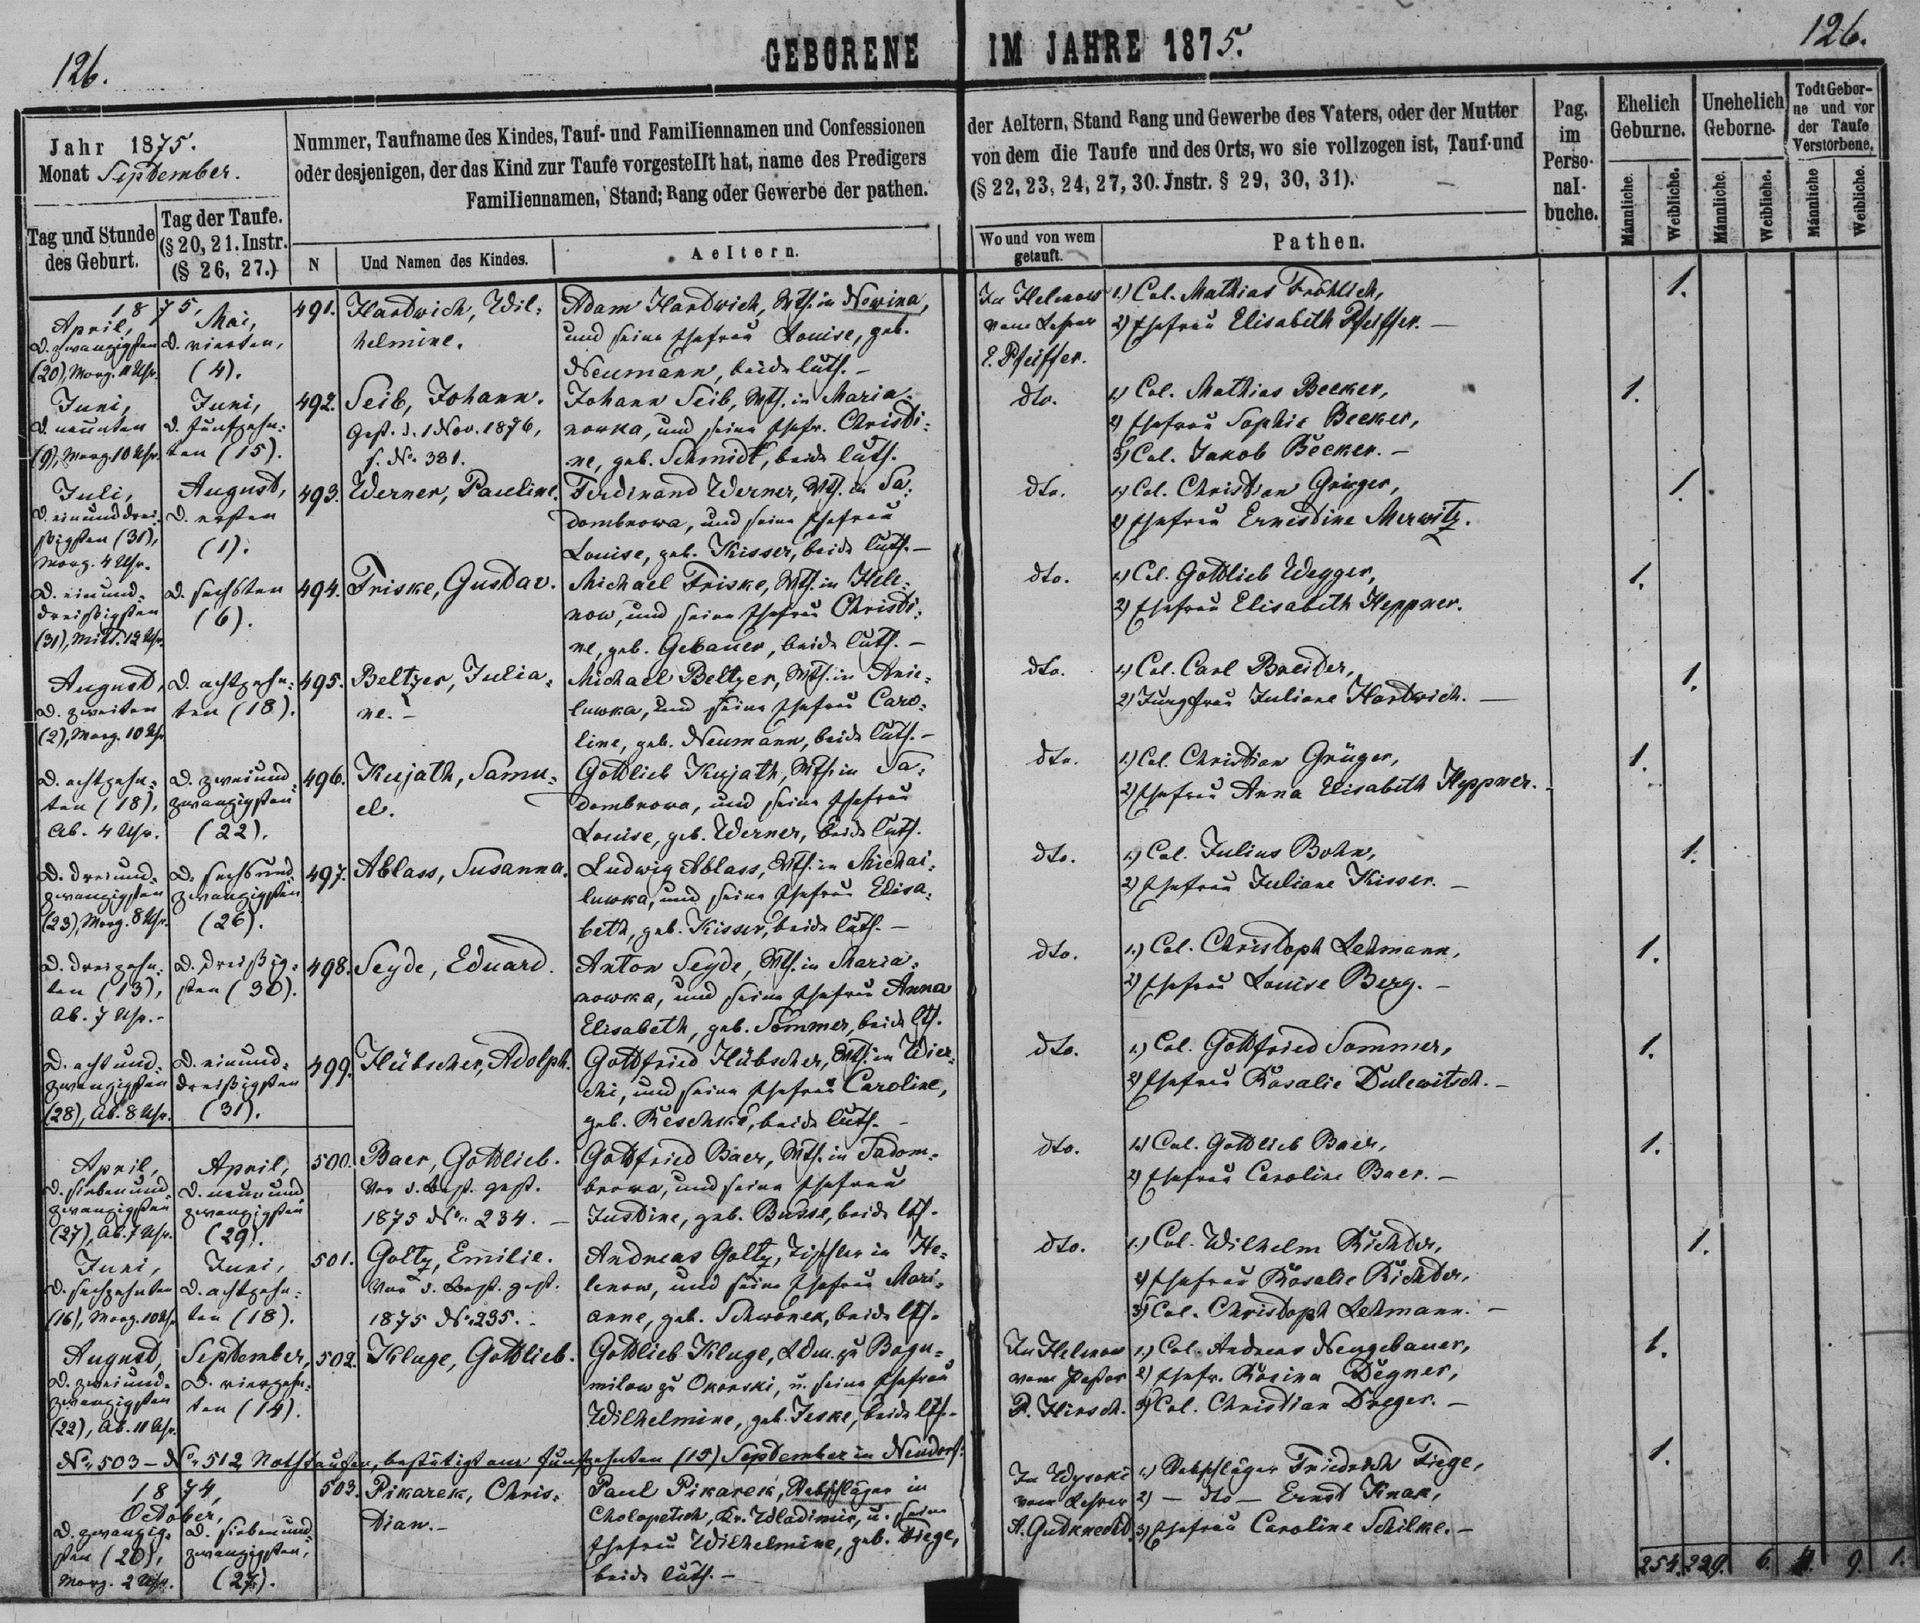 126.
GEBORENE IM JAHRE 1875.
126.
Jahr 1875.
Monat September.
Nummer, Taufname des Kindes, Tauf- und Familiennamen und Confessionen
oder desjenigen, der das Kind zur Taufe vorgestellt hat, name des Predigers
Familiennamen, Stand; Rang oder Gewerbe der pathen.
der Aeltern, Stand Rang und Gewerbe des Vaters, oder der Mutter
von dem die Taufe und des Orts, wo sie vollzogen ist, Tauf-und
(§ 22, 23, 24, 27, 30. Jnstr. § 29, 30, 31).
Pag.
im
Perso-
nal-
buche.
Ehelich
Geburne.
Unehelich
Geborne.
Todt Gebor-
ne und vor
der Taufe
Verstorbene.
Tag und Stunde
des Geburt.
Tag der Taufe.
(§ 20, 21. Instr.
(§ 26, 27.)
N
Und Namen des Kindes.
Aeltern.
Wo und von wem
getauft.
Pathen.
Männliche.
Weibliche.
Männliche.
Weibliche.
Männliche
Weibliche.
1875,
April,
d. zwanzigsten
(20), Morg. 11 Uhr.
Mai,
d. vierten,
(4).
491.
Hardwich, Wil-
helmine.
Adam Hardwich, Wth. in Nowina,
und seine Ehefrau Louise, geb.
Neumann, beide luth. –
In Helenow
vom Lehrer
E. Pfeiffer.
1) Col. Mathias Fröhlich,
2) Ehefrau Elisabeth Pfeiffer. –
1.
Juni,
d. neunten
(9), Morg. 10 Uhr.
Juni,
d. fünfzehn-
ten (15).
492.
Seib, Johann.
Gest. d. 1 Nov. 1876,
s. No. 381.
Johann Seib, Wth. in Maria-
nowka, und seine Ehefr. Christi-
ne, geb. Schmidt, beide luth.
dto.
1) Col. Mathias Becker,
2) Ehefrau Sophie Becker,
3) Col. Jakob Becker. –
1.
Juli,
d. einunddrei-
ßigsten (31),
Morg. 4 Uhr.
August,
d. ersten
(1).
493.
Werner, Pauline.
Ferdinand Werner, Wth. in Sa-
dombrowa, und seine Ehefrau
Louise, geb. Kisser, beide luth. –
dto.
1) Col. Christian Grüger,
2) Ehefrau Ernestine Merwitz.
1.
d. einund-
dreißigsten
(31), Mitt. 12 Uhr.
d. sechsten
(6).
494.
Friske, Gustav.
Michael Friske, Wth. in Hele-
now, und seine Ehefrau Christi-
ne, geb. Gebauer, beide luth. –
dto.
1) Col. Gottlieb Wegger,
2) Ehefrau Elisabeth Heppner.
1.
August,
d. zweiten
(2), Morg. 10 Uhr
d. achtzehn-
ten (18).
495.
Beltzer, Julia-
ne. –
Michael Beltzer, Wth. in Anie-
luwka, und seine Ehefrau Caro-
line, geb. Neumann, beide luth. –
dto.
1) Col. Carl Breider,
2) Jungfrau Juliane Hardwich. –
1.
d. achtzehn-
ten (18),
Ab. 4 Uhr.
d. zweiund
zwanzigsten
(22).
496.
Kujath, Samu-
el.
Gottlieb Kujath, Wth. in Sa-
dombrowa, und seine Ehefrau
Louise, geb. Werner, beide luth.
dto.
1) Col. Christian Grüger,
2) Ehefrau Anna Elisabeth Heppner.
1.
d. dreiund-
zwanzigsten
(23), Morg. 8 Uhr.
d. sechsund
zwanzigsten
(26).
497.
Ablass, Susanna.
Ludwig Ablass, Wth. in Michai-
luwka, und seine Ehefrau Elisa-
beth, geb. Kisser, beide luth. –
dto.
1) Col. Julius Bohn,
2) Ehefrau Juliane Kisser. –
1.
d. dreizehn-
ten (13),
Ab. 7 Uhr. –
d. dreißig-
sten (30).
498.
Seyde, Eduard.
Anton Seyde, Wth. in Maria-
nowka, und seine Ehefrau Anna
Elisabeth, geb. Sommer, beide lth.
dto.
1) Col. Christoph Lehmann,
2) Ehefrau Louise Berg. –
1.
d. achtund-
zwanzigsten
(28), Ab. 8 Uhr.
d. einund-
dreißigsten
(31).
499.
Hübscher, Adolph.
Gottfried Hübscher, Wth. in Wier-
chi, und seine Ehefrau Caroline,
geb. Reschke, beide luth. –
dto.
1) Col. Gottfried Sommer,
2) Ehefrau Rosalie Dulewitsch. –
1.
April,
d. siebenund
zwanzigsten
(27), Ab. 7 Uhr.
April,
d. neunund
zwanzigsten
(29).
500.
Baer, Gottlieb.
Vor d. Best. gest.
1875 No. 234. –
Gottfried Baer, Wth. in Sadom-
browa, und seine Ehefrau
Justine, geb. Busse, beide lth.
dto.
1) Col. Gottlieb Baer,
2) Ehefrau Caroline Baer. –
1.
Juni,
d. sechzehnten
(16), Morg. 10 Uhr
Juni,
d. achtzehn-
ten (18).
501.
Goltz, Emilie.
Vor d. Best. gest.
1875 No. 235.
Andreas Goltz, Tischler in He-
lenow, und seine Ehefrau Mari-
anne, geb. Schwonek, beide lth.
dto.
1) Col. Wilhelm Richter,
2) Ehefrau Rosalie Richter,
3) Col. Christoph Lehmann. –
1.
August,
d. zweiund-
zwanzigsten
(22), Ab. 11 Uhr.
September,
d. vierzehn-
ten (14).
502.
Kluge, Gottlieb.
Gottlieb Kluge, Ldm. zu Bogu-
milow zu Okonski, u. seine Ehefrau
Wilhelmine, geb. Jeske, beide lth. –
In Helenow
vom Pastor
P. Hirsch.
1) Col. Andreas Neugebauer,
2) Ehefr. Rosina Degner,
3) Col. Christian Dreger. –
1.
No. 503 – No. 512 Nothtaufen, bestätigt am fünfzehnten (15) September in Neudorf.
1874,
October,
d. zwanzig-
sten (20),
Morg. 2 Uhr.
d. siebenund
zwanzigsten,
(27).
503.
Pikarek, Chris-
tian. –
Paul Pikarek, Stabschläger in
Cholopetsch, Kr. Wladimir, u. seine
Ehefrau Wilhelmine, geb. Fiege,
beide luth. –
In Wysoki
vom Lehrer
A. Gudknecht.
1) Stabschläger Friedrich Fiege,
2) – dto – Ernst Knak,
3) Ehefrau Caroline Schilke. –
1.
254. 229. 6. 9. 1.